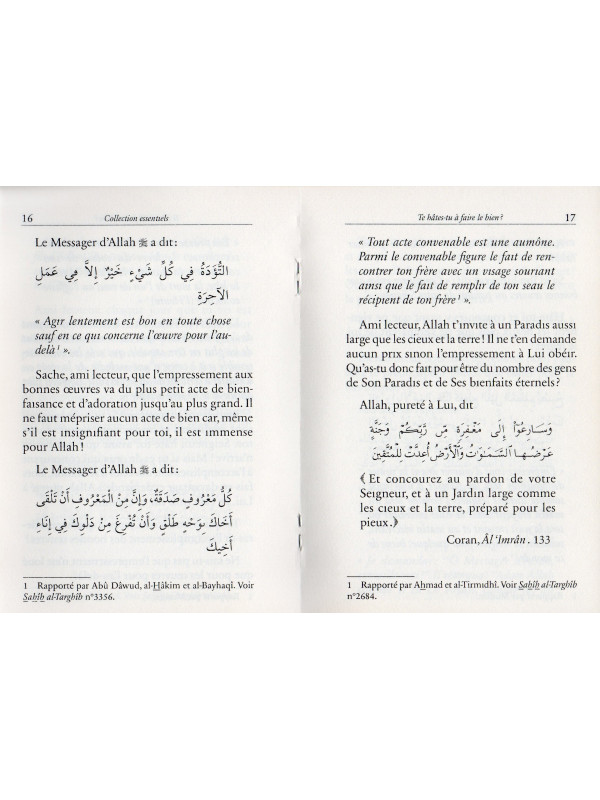 16
Collection essentiels
Le Messager d'Allah ﷺ a dit :
التُّؤَدَةُ فِي كُلِّ شَيْءٍ خَيْرٌ إِلاَّ فِي عَمَلِ
الآخِرَةِ
« Agir lentement est bon en toute chose
sauf en ce qui concerne l'œuvre pour l'au-
delà ¹ ».
Sache, ami lecteur, que l'empressement aux
bonnes œuvres va du plus petit acte de bien-
faisance et d'adoration jusqu'au plus grand. Il
ne faut mépriser aucun acte de bien car, même
s'il est insignifiant pour toi, il est immense
pour Allah !
Le Messager d'Allah ﷺ a dit :
كُلُّ مَعْرُوفٍ صَدَقَةٌ، وَإِنَّ مِنْ الْمَعْرُوفِ أَنْ تَلْقَى
أَخَاكَ بِوَجْهٍ طَلْقٍ وَأَنْ تُفْرِغَ مِنْ دَلْوِكَ فِي إِنَاءِ
أَخِيكَ
1 Rapporté par Abû Dâwud, al-Hâkim et al-Bayhaqî. Voir
Sahîh al-Targhîb n°3356.
Te hâtes-tu à faire le bien ?
17
« Tout acte convenable est une aumône.
Parmi le convenable figure le fait de ren-
contrer ton frère avec un visage souriant
ainsi que le fait de remplir de ton seau le
récipient de ton frère ¹ ».
Ami lecteur, Allah t'invite à un Paradis aussi
large que les cieux et la terre ! Il ne t'en demande
aucun prix sinon l'empressement à Lui obéir.
Qu'as-tu donc fait pour être du nombre des gens
de Son Paradis et de Ses bienfaits éternels ?
Allah, pureté à Lui, dit
وَسَارِعُوٓا۟ إِلَىٰ مَغْفِرَةٍ مِّن رَّبِّكُمْ وَجَنَّةٍ
عَرْضُهَا ٱلسَّمَـٰوَٰتُ وَٱلْأَرْضُ أُعِدَّتْ لِلْمُتَّقِينَ
﴾ Et concourez au pardon de votre
Seigneur, et à un Jardin large comme
les cieux et la terre, préparé pour les
pieux. ﴿
Coran, Âl 'Imrân . 133
1 Rapporté par Ahmad et al-Tirmidhî. Voir Sahîh al-Targhîb
n°2684.